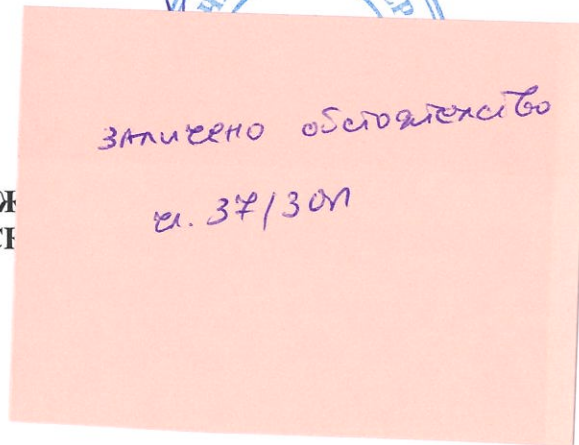 заличено обстоятелство
чл. 37/ЗОП